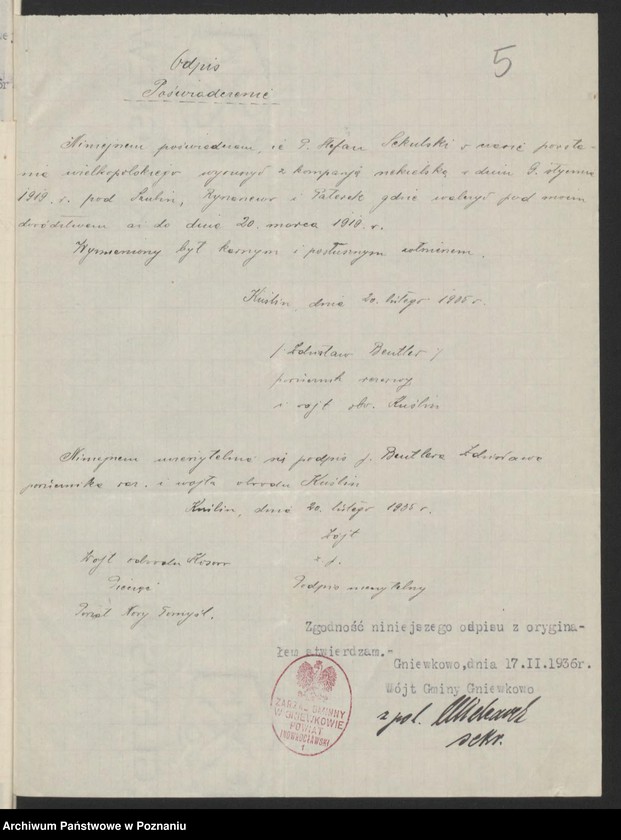 5
Odpis
Poświadczenie
Niniejszem poświadczam, że P. Stefan Sekulski w czasie powsta-
nia wielkopolskiego wyruszył z kompanją nekielską w dniu 9. stycznia
1919. r. pod Szubin, Rynarzewo i Paterek gdzie walczył pod moim
dowództwem aż do dnia 20. marca 1919. r.
Wymieniony był karnym i posłusznym żołnierzem.
Kuślin, dnia 20. lutego 1935 r.
/ Zdzisław Beutler /
porucznik rezerwy
i wójt obw. Kuślin
Niniejszem uwierzytelnia się podpis p. Beutlera Zdzisława
porucznika rez. i wójta obwodu Kuślin
Kuślin, dnia 20. lutego 1935 r.
Wójt
z. p.
Podpis nieczytelny
Wójt obwodu
Pieczęć
Powiat Nowy Tomyśl.
Zgodność niniejszego odpisu z orygina-
łem stwierdzam.-
Gniewkowo, dnia 17.II.1936r.
Wójt Gminy Gniewkowo
z pol.
sekr.
ZARZĄD GMINNY
W GNIEWKOWIE
POWIAT
INOWROCŁAWSKI
1
Archiwum Państwowe w Poznaniu